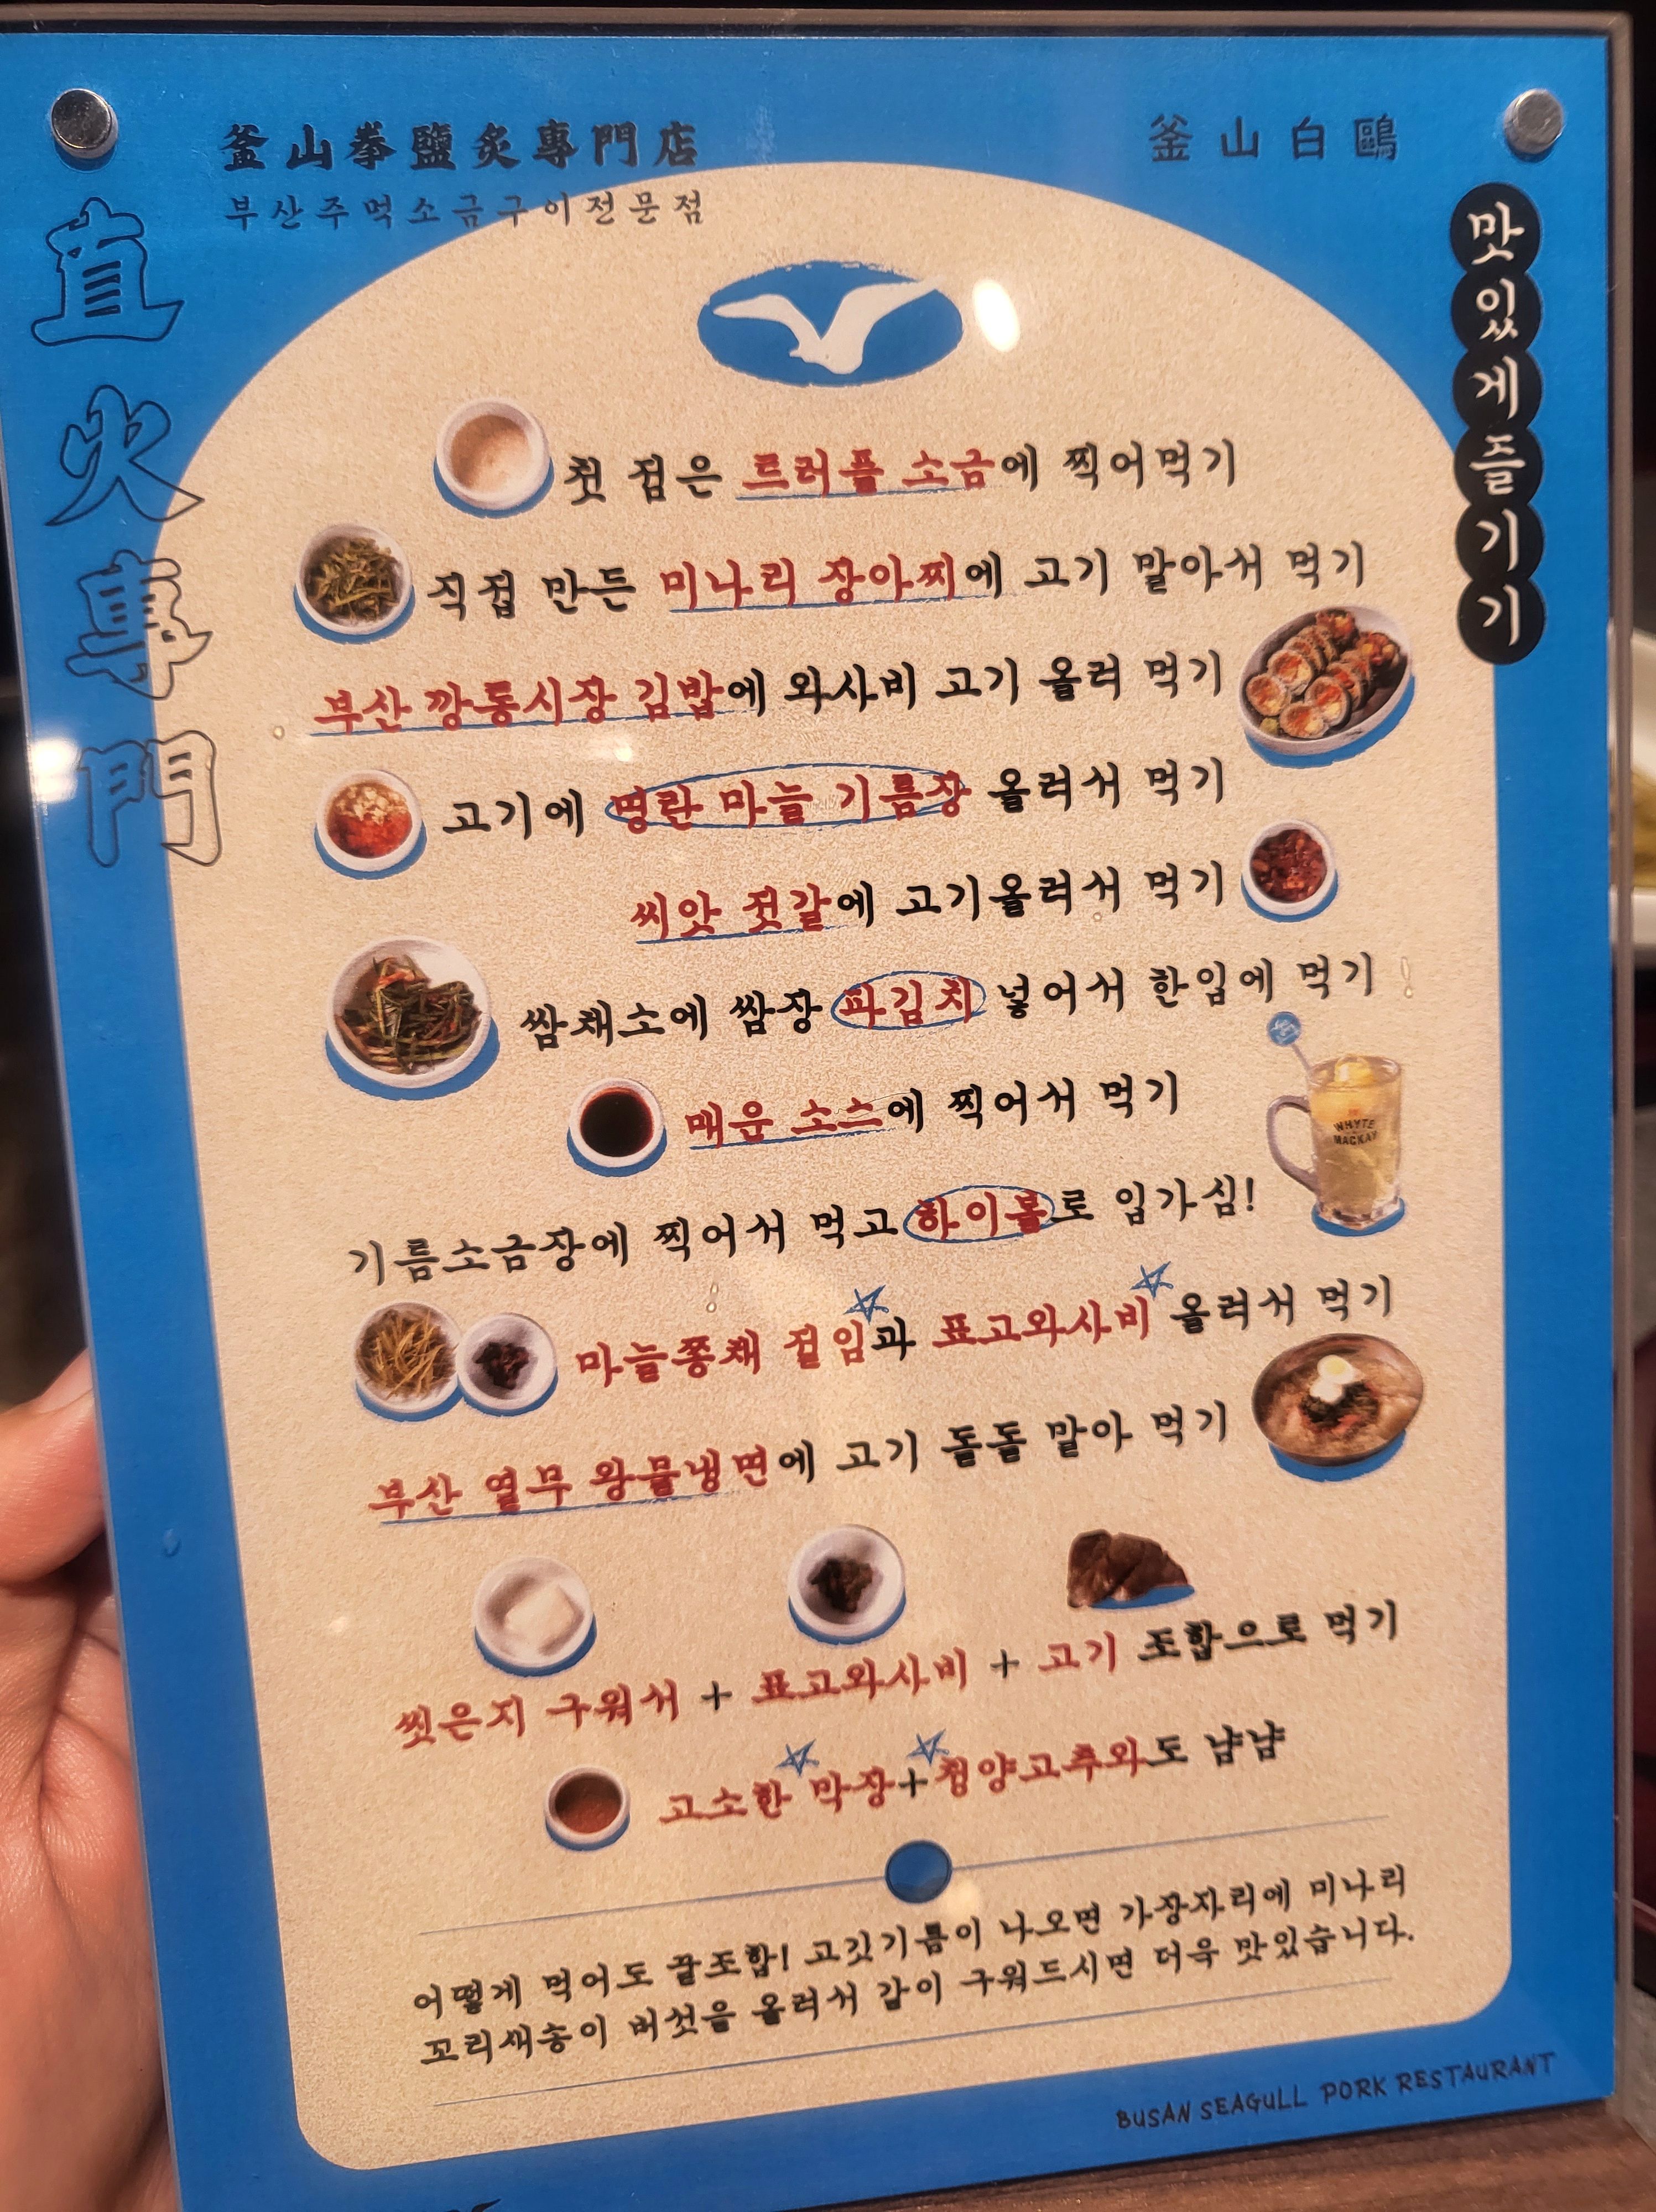 釜山拳鹽炙專門店
부산주먹소금구이전문점
釜山白鷗
直火專門
맛있게즐기기
첫 점은 트러플 소금에 찍어먹기
직접 만든 미나리 장아찌에 고기 말아서 먹기
부산 깡통시장 김밥에 와사비 고기 올려 먹기
고기에 명란 마늘 기름장 올려서 먹기
씨앗 젓갈에 고기올려서 먹기
쌈채소에 쌈장 파김치 넣어서 한입에 먹기
매운 소스에 찍어서 먹기
WHYTE
MACKAY
기름소금장에 찍어서 먹고 하이볼로 입가심!
마늘쫑채 절임과 표고와사비 올려서 먹기
부산 열무 왕물냉면에 고기 돌돌 말아 먹기
씻은지 구워서 + 표고와사비 + 고기 조합으로 먹기
고소한 막장+청양고추와도 냠냠
어떻게 먹어도 꿀조합! 고깃기름이 나오면 가장자리에 미나리
꼬리새송이 버섯을 올려서 같이 구워드시면 더욱 맛있습니다.
BUSAN SEAGULL PORK RESTAURANT